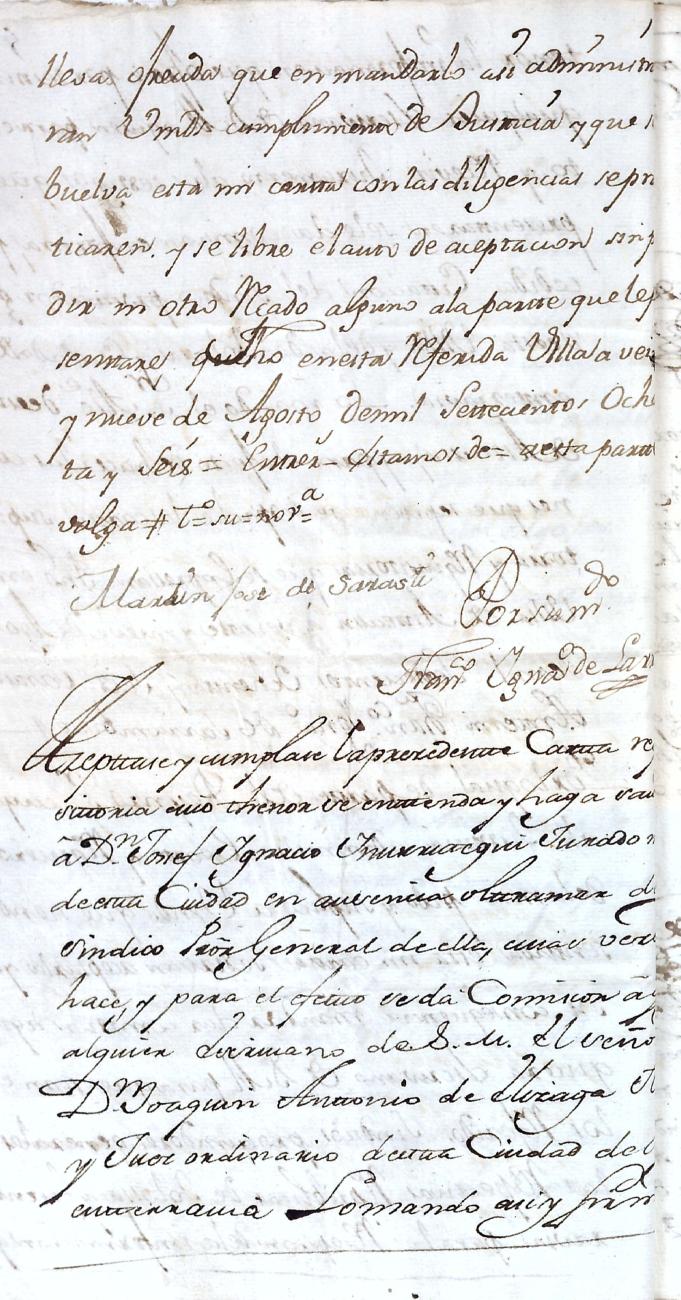 llevas ofrecida que en mandarlo asi administra
ran Vmds cumplimiento de Justicia y que se
buelva esta mi carta con las diligencias se pra
ticaren. y se libre el auto de aceptacion sin p
dir ni otro Rcado alguno ala parte que le p
sentare, fecho en esta Rferida Villa a vei
y nueve de Agosto de mil Settecientos Oche
ta y Seis = Entrerr - estamos de = a esta parte
valga = # To = su = nova
Martin Jose de Sarasua Por su mdo
Franco Ignao de Larr
Azeptase y cumplase la precedente Carta re
sitoria cuio thenor se entienda y haga sav
a Dn Josef Ignacio Inurriategui Jurado m
de esta Ciudad en ausencia ultramar de
Sindico Pror General de ella, cuias vezes
hace, y para el efecto se da Comision a
alquier Escrivano de S. M. El Seño
Dn Joaquin Antonio de Elizaga A
y Juez ordinario de esta Ciudad de
enterravia Lo mando asi y firm